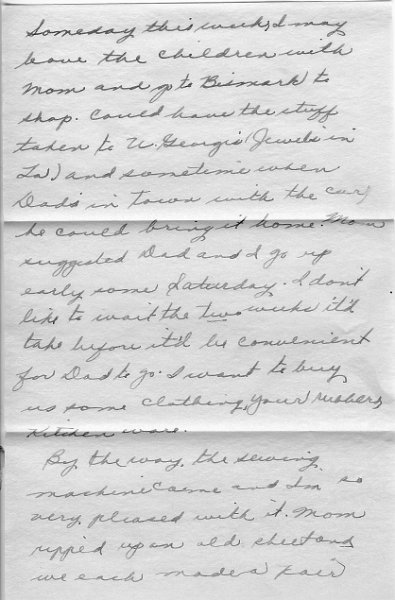 Someday this week, I may
leave the children with
Mom and go to Bismark to
shop. Could have the stuff
taken to U. George's (Jewel's in
La.) and sometime when
Dad's in town with the car,
he could bring it home. Mom
suggested Dad and I go up
early some Saturday. I don't
like to wait the two weeks it'd
take before it'd be convenient
for Dad to go. I want to buy
us some clothing, your
Kitchen ware.
By the way, the sewing
machine came and I'm so
very pleased with it. Mom
ripped up an old sheet and
we each made a pair